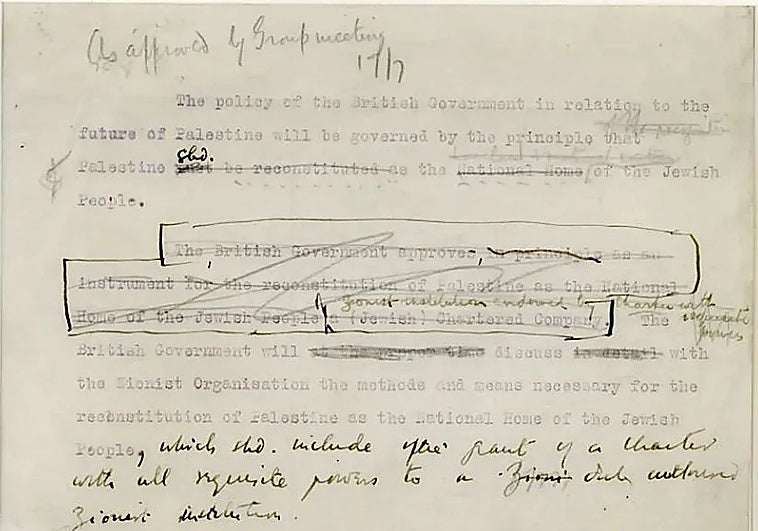 As approved by Group meeting
17/7
The policy of the British Government in relation to the
future of Palestine will be governed by the principle that
shd.
Palestine must be reconstituted as the National Home of the Jewish
People.
The British Government approves, in principle as an
instrument for the reconstitution of Palestine as the National
Zionist institution endowed by Charter with
Home of the Jewish People a (Jewish) Chartered Company. The
requisite powers
British Government will at the proper time discuss in detail with
the Zionist Organisation the methods and means necessary for the
reconstitution of Palestine as the National Home of the Jewish
People, which shd. include the grant of a Charter
with all requisite powers to a Zioni duly authorised
Zionist institution.